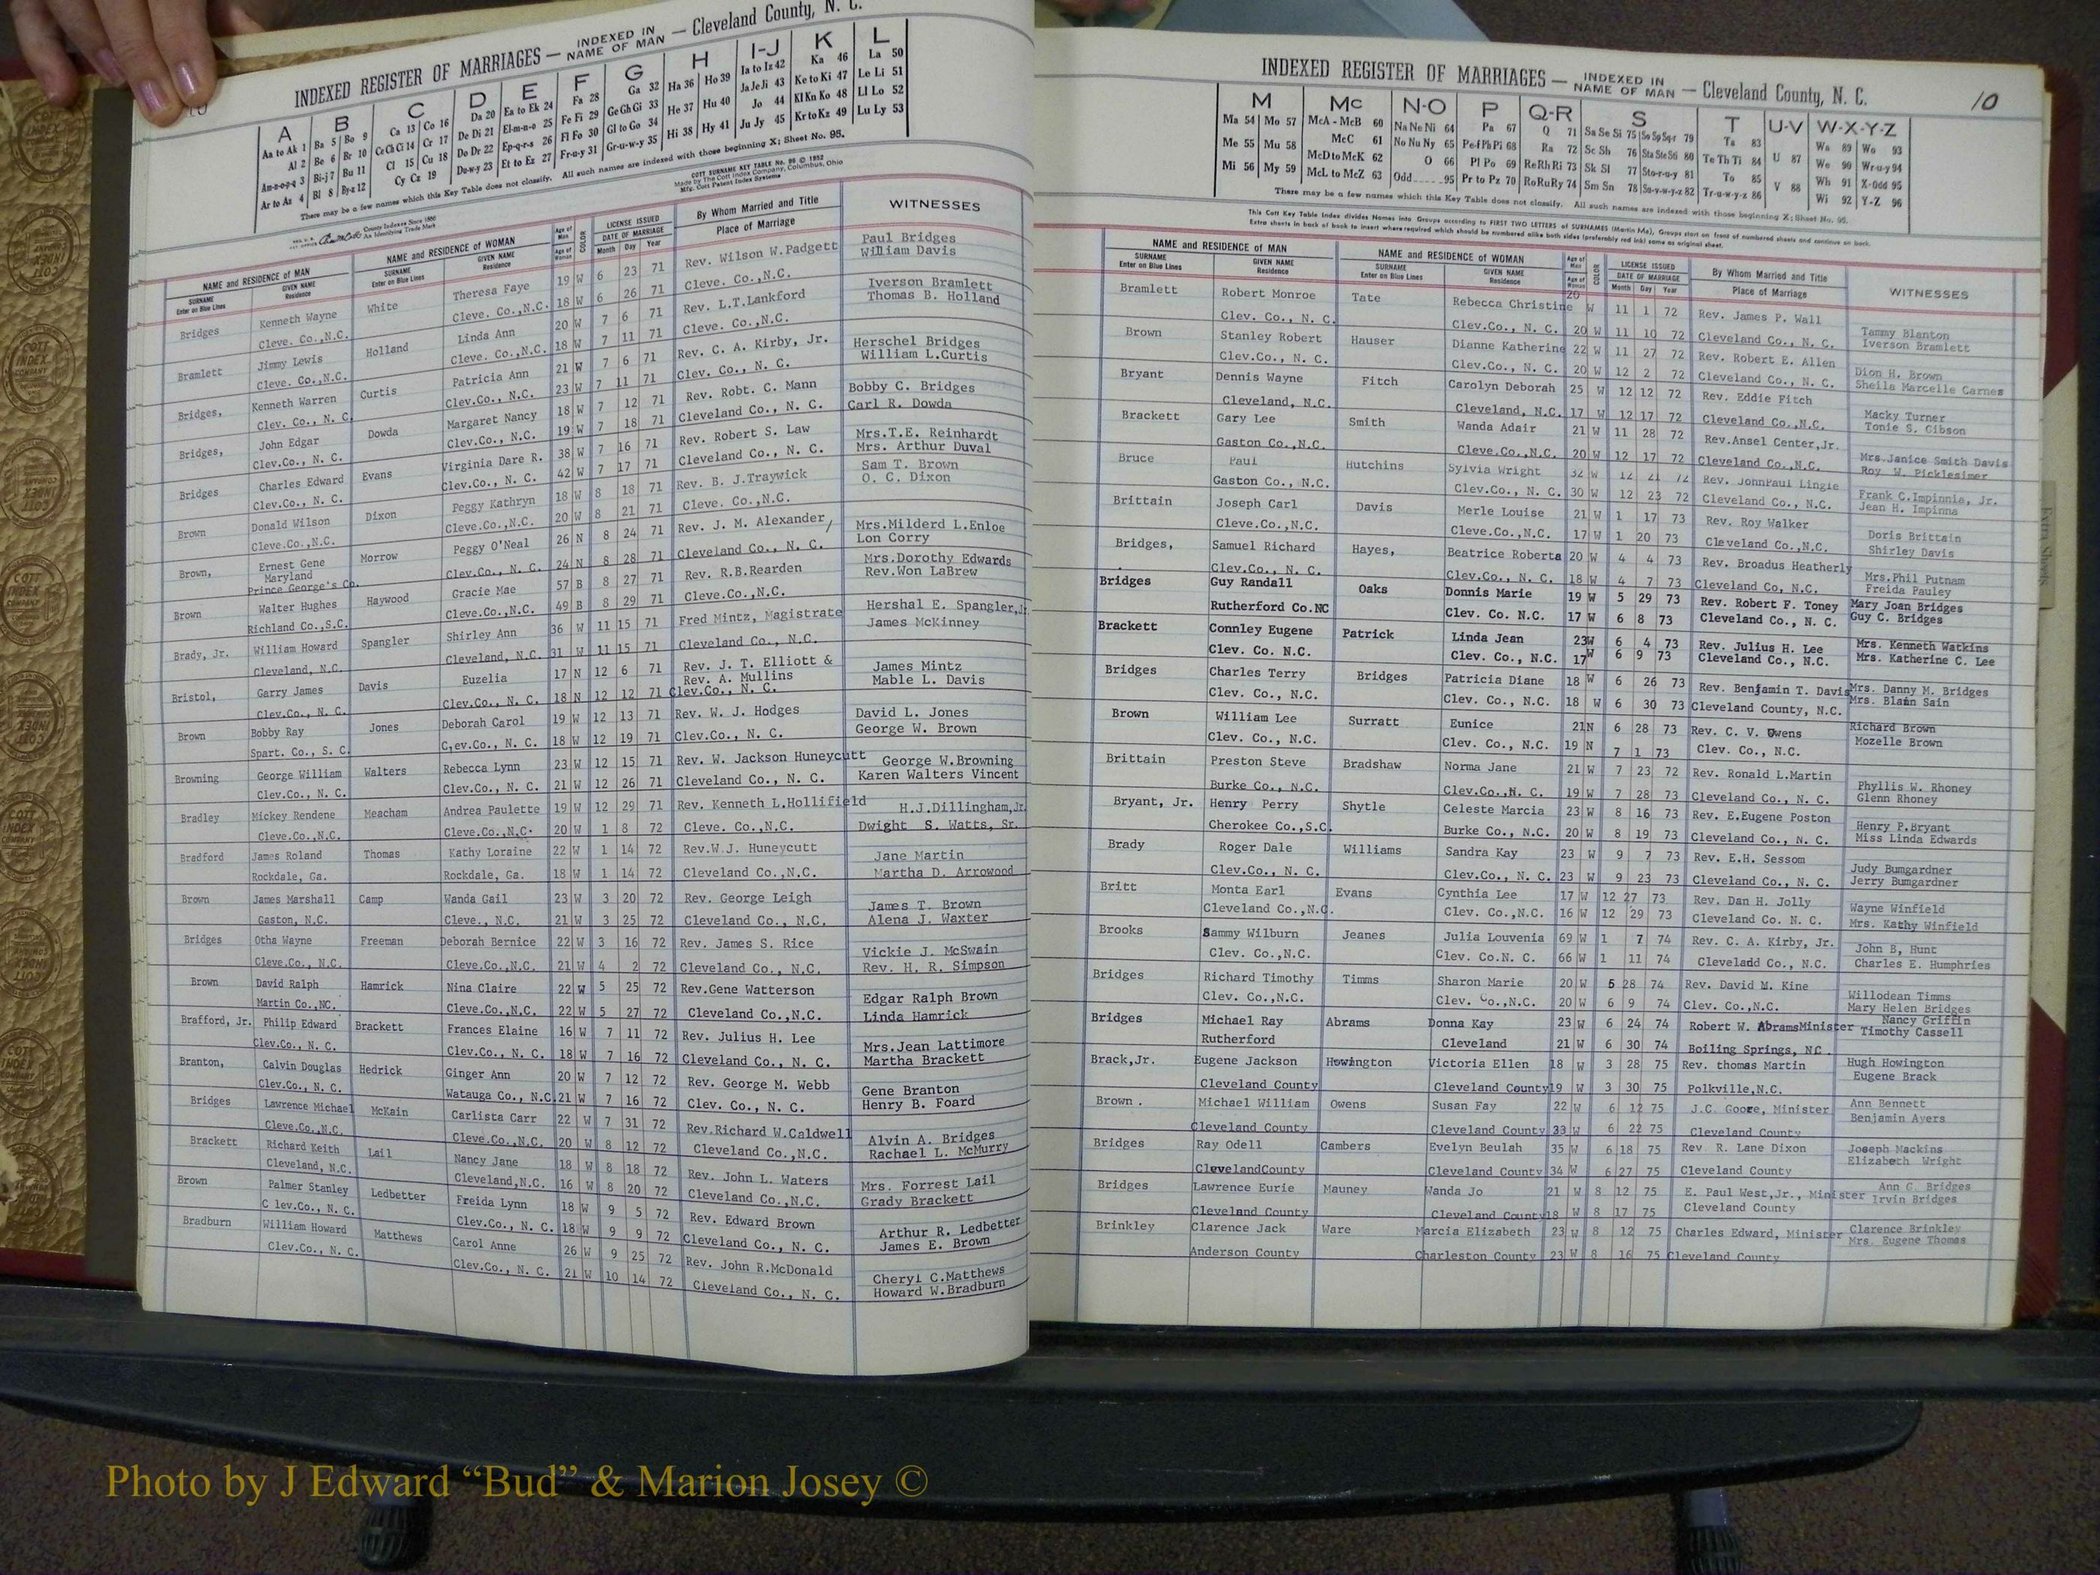 10
INDEXED REGISTER OF MARRIAGES — INDEXED IN NAME OF MAN — Cleveland County, N. C.
A B C D E F G H I-J K L
Aa to Ak 1 Ba 5 Bo 9 Ca 13 Co 16 Da 20 Ea to Ek 24 Fa 28 Ga 32 Ha 36 Ho 39 Ia to Iz 42 Ka 46 La 50
Al 2 Be 6 Br 10 Ce Ch Ci 14 Cr 17 De Di 21 El-m-n-o 25 Fe Fi 29 Ge Gh Gi 33 He 37 Hu 40 Ja Je Ji 43 Ke to Ki 47 Le Li 51
Am-n-o-p-q 3 Bi-j 7 Bu 11 Cl 15 Cu 18 Do Dr 22 Ep-q-r-s 26 Fl Fo 30 Gl to Go 34 Hi 38 Hy 41 Jo 44 Kl Kn Ko 48 Ll Lo 52
Ar to Az 4 Bl 8 By-z 12 Cy Cz 19 Du-w-y 23 Et to Ez 27 Fr-u-y 31 Gr-u-w-y 35 Ju Jy 45 Kr to Kz 49 Lu Ly 53
There may be a few names which this Key Table does not classify. All such names are indexed with those beginning X; Sheet No. 95.
COTT SURNAME KEY TABLE No. 96 © 1952
Made by The Cott Index Company, Columbus, Ohio
Mfg. Cott Patent Index Systems
County Indexes Since 1880
An Identifying Trade Mark
NAME and RESIDENCE of MAN NAME and RESIDENCE of WOMAN Age of Man Age of Woman COLOR LICENSE ISSUED DATE OF MARRIAGE By Whom Married and Title Place of Marriage WITNESSES
SURNAME Enter on Blue Lines GIVEN NAME Residence SURNAME Enter on Blue Lines GIVEN NAME Residence Month Day Year
Bridges Kenneth Wayne White Theresa Faye 19 W 6 23 71 Rev. Wilson W.Padgett Paul Bridges
Cleve. Co.,N.C. Cleve. Co.,N.C. 18 W 6 26 71 Cleve. Co.,N.C. William Davis
Bramlett Jimmy Lewis Holland Linda Ann 20 W 7 6 71 Rev. L.T.Lankford Iverson Bramlett
Cleve. Co.,N.C. Cleve. Co.,N.C. 18 W 7 11 71 Cleve. Co.,N.C. Thomas B. Holland
Bridges, Kenneth Warren Curtis Patricia Ann 21 W 7 6 71 Rev. C. A. Kirby, Jr. Herschel Bridges
Clev. Co., N. C. Clev.Co., N. C. 23 W 7 11 71 Clev. Co., N. C. William L.Curtis
Bridges, John Edgar Dowda Margaret Nancy 18 W 7 12 71 Rev. Robt. C. Mann Bobby C. Bridges
Clev.Co., N. C. Clev.Co., N. C. 19 W 7 18 71 Cleveland Co., N. C. Carl R. Dowda
Bridges Charles Edward Evans Virginia Dare R. 38 W 7 16 71 Rev. Robert S. Law Mrs.T.E. Reinhardt
Clev.Co., N. C. Clev.Co., N. C. 42 W 7 17 71 Cleveland Co., N. C. Mrs. Arthur Duval
Brown Donald Wilson Dixon Peggy Kathryn 18 W 8 18 71 Rev. B. J.Traywick Sam T. Brown
Cleve.Co.,N.C. Cleve.Co.,N.C. 20 W 8 21 71 Cleve. Co.,N.C. O. C. Dixon
Brown, Ernest Gene Morrow Peggy O'Neal 26 N 8 24 71 Rev. J. M. Alexander Mrs.Milderd L.Enloe
Maryland Prince George's Co. Clev.Co., N. C. 24 N 8 28 71 Cleveland Co., N. C. Lon Corry
Brown Walter Hughes Haywood Gracie Mae 57 B 8 27 71 Rev. R.B.Rearden Mrs.Dorothy Edwards
Richland Co.,S.C. Cleve.Co.,N.C. 49 B 8 29 71 Cleve.Co.,N.C. Rev.Won LaBrew
Brady, Jr. William Howard Spangler Shirley Ann 36 W 11 15 71 Fred Mintz, Magistrate Hershal E. Spangler,Jr.
Cleveland, N.C. Cleveland, N.C. 31 W 11 15 71 Cleveland Co., N.C. James McKinney
Bristol, Garry James Davis Euzelia 17 N 12 6 71 Rev. J. T. Elliott & Rev. A. Mullins James Mintz
Clev.Co., N. C. Clev.Co., N. C. 18 N 12 12 71 Clev.Co., N. C. Mable L. Davis
Brown Bobby Ray Jones Deborah Carol 19 W 12 13 71 Rev. W. J. Hodges David L. Jones
Spart. Co., S. C. C,ev.Co., N. C. 18 W 12 19 71 Clev.Co., N. C. George W. Brown
Browning George William Walters Rebecca Lynn 23 W 12 15 71 Rev. W. Jackson Huneycutt George W.Browning
Clev.Co., N. C. Clev.Co., N. C. 21 W 12 26 71 Cleveland Co., N. C. Karen Walters Vincent
Bradley Mickey Rendene Meacham Andrea Paulette 19 W 12 29 71 Rev. Kenneth L.Hollifield H.J.Dillingham,Jr.
Cleve.Co.,N.C. Cleve.Co.,N.C. 20 W 1 8 72 Cleve. Co.,N.C. Dwight S. Watts, Sr.
Bradford James Roland Thomas Kathy Loraine 22 W 1 14 72 Rev.W.J. Huneycutt Jane Martin
Rockdale, Ga. Rockdale, Ga. 18 W 1 14 72 Cleveland Co.,N.C. Martha D. Arrowood
Brown James Marshall Camp Wanda Gail 23 W 3 20 72 Rev. George Leigh James T. Brown
Gaston, N.C. Cleve., N.C. 21 W 3 25 72 Cleveland Co., N.C. Alena J. Waxter
Bridges Otha Wayne Freeman Deborah Bernice 22 W 3 16 72 Rev. James S. Rice Vickie J. McSwain
Cleve.Co., N.C. Cleve.Co.,N.C. 21 W 4 2 72 Cleveland Co., N.C. Rev. H. R. Simpson
Brown David Ralph Hamrick Nina Claire 22 W 5 25 72 Rev.Gene Watterson Edgar Ralph Brown
Martin Co.,NC. Cleve.Co.,N.C. 22 W 5 27 72 Cleveland Co.,N.C. Linda Hamrick
Brafford, Jr. Philip Edward Brackett Frances Elaine 16 W 7 11 72 Rev. Julius H. Lee Mrs.Jean Lattimore
Clev.Co., N. C. Clev.Co., N. C. 18 W 7 16 72 Cleveland Co., N. C. Martha Brackett
Branton, Calvin Douglas Hedrick Ginger Ann 20 W 7 12 72 Rev. George M. Webb Gene Branton
Clev.Co., N. C. Watauga Co., N.C. 21 W 7 16 72 Clev. Co., N. C. Henry B. Foard
Bridges Lawrence Michael McKain Carlista Carr 22 W 7 31 72 Rev.Richard W.Caldwell Alvin A. Bridges
Cleve.Co.,N.C. Cleve.Co.,N.C. 20 W 8 12 72 Cleveland Co.,N.C. Rachael L. McMurry
Brackett Richard Keith Lail Nancy Jane 18 W 8 18 72 Rev. John L. Waters Mrs. Forrest Lail
Cleveland, N.C. Cleveland,N.C. 16 W 8 20 72 Cleveland Co.,N.C. Grady Brackett
Brown Palmer Stanley Ledbetter Freida Lynn 18 W 9 5 72 Rev. Edward Brown Arthur R. Ledbetter
C lev.Co., N. C. Clev.Co., N. C. 18 W 9 9 72 Cleveland Co., N. C. James E. Brown
Bradburn William Howard Matthews Carol Anne 26 W 9 25 72 Rev. John R.McDonald Cheryl C.Matthews
Clev.Co., N. C. Clev.Co., N. C. 21 W 10 14 72 Cleveland Co., N. C. Howard W.Bradburn
INDEXED REGISTER OF MARRIAGES — INDEXED IN NAME OF MAN — Cleveland County, N. C. 10
M Mc N-O P Q-R S T U-V W-X-Y-Z
Ma 54 Mo 57 McA - McB 60 Na Ne Ni 64 Pa 67 Q 71 Sa Se Si 75 So Sp Sq-r 79 Ta 83 Wa 89 Wo 93
Me 55 Mu 58 McC 61 No Nu Ny 65 Pe-f Ph Pi 68 Ra 72 Sc Sh 76 Sta Ste Sti 80 Te Th Ti 84 U 87 We 90 Wr-u-y 94
McD to McK 62 O 66 Pl Po 69 Re Rh Ri 73 Sk Sl 77 Sto-r-u-y 81 To 85 Wh 91 X-Odd 95
Mi 56 My 59 McL to McZ 63 Odd 95 Pr to Pz 70 Ro Ru Ry 74 Sm Sn 78 Su-v-w-y-z 82 Tr-u-w-y-z 86 V 88 Wi 92 Y-Z 96
There may be a few names which this Key Table does not classify. All such names are indexed with those beginning X; Sheet No. 95.
This Cott Key Table Index divides Names into Groups according to FIRST TWO LETTERS of SURNAMES (Martin Ma), Groups start on front of numbered sheets and continue on back.
Extra sheets in back of book to insert where required which should be numbered alike both sides (preferably red ink) same as original sheet.
NAME and RESIDENCE of MAN NAME and RESIDENCE of WOMAN Age of Man Age of Woman COLOR LICENSE ISSUED DATE OF MARRIAGE By Whom Married and Title Place of Marriage WITNESSES
SURNAME Enter on Blue Lines GIVEN NAME Residence SURNAME Enter on Blue Lines GIVEN NAME Residence Month Day Year
Bramlett Robert Monroe Tate Rebecca Christine 20 W 11 1 72 Rev. James P. Wall Tammy Blanton
Clev. Co., N. C. Clev.Co., N. C. 20 W 11 10 72 Cleveland Co., N. C. Iverson Bramlett
Brown Stanley Robert Hauser Dianne Katherine 22 W 11 27 72 Rev. Robert E. Allen Dion H. Brown
Clev.Co., N. C. Clev.Co., N. C. 20 W 12 2 72 Cleveland Co., N. C. Sheila Marcelle Carnes
Bryant Dennis Wayne Fitch Carolyn Deborah 25 W 12 12 72 Rev. Eddie Fitch Macky Turner
Cleveland, N.C. Cleveland, N.C. 17 W 12 17 72 Cleveland Co.,N.C. Tonie S. Gibson
Brackett Gary Lee Smith Wanda Adair 21 W 11 28 72 Rev.Ansel Center,Jr. Mrs.Janice Smith Davis
Gaston Co.,N.C. Cleve.Co.,N.C. 20 W 12 17 72 Cleveland Co.,N.C. Roy W. Picklesimer
Bruce Paul Hutchins Sylvia Wright 32 W 12 21 72 Rev. JohnPaul Lingle Frank C.Impinnia, Jr.
Gaston Co., N.C. Clev.Co., N. C. 30 W 12 23 72 Cleveland Co., N. C. Jean H. Impinna
Brittain Joseph Carl Davis Merle Louise 21 W 1 17 73 Rev. Roy Walker Doris Brittain
Cleve.Co.,N.C. Cleve.Co.,N.C. 17 W 1 20 73 Cleveland Co.,N.C. Shirley Davis
Bridges, Samuel Richard Hayes, Beatrice Roberta 20 W 4 4 73 Rev. Broadus Heatherly Mrs.Phil Putnam
Clev.Co., N. C. Clev.Co., N. C. 18 W 4 7 73 Cleveland Co, N.C. Freida Pauley
Bridges Guy Randall Oaks Donnis Marie 19 W 5 29 73 Rev. Robert F. Toney Mary Joan Bridges
Rutherford Co.NC Clev. Co. N.C. 17 W 6 8 73 Cleveland Co., N. C. Guy C. Bridges
Brackett Connley Eugene Patrick Linda Jean 23W 6 4 73 Rev. Julius H. Lee Mrs. Kenneth Watkins
Clev. Co. N.C. Clev. Co., N.C. 17 W 6 9 73 Cleveland Co., N.C. Mrs. Katherine C. Lee
Bridges Charles Terry Bridges Patricia Diane 18 W 6 26 73 Rev. Benjamin T. Davis Mrs. Danny M. Bridges
Clev. Co., N.C. Clev. Co., N.C. 18 W 6 30 73 Cleveland County, N.C. Mrs. Blain Sain
Brown William Lee Surratt Eunice 21N 6 28 73 Rev. C. V. Owens Richard Brown
Clev. Co., N.C. Clev. Co., N.C. 19 N 7 1 73 Clev. Co., N.C. Mozelle Brown
Brittain Preston Steve Bradshaw Norma Jane 21 W 7 23 72 Rev. Ronald L.Martin Phyllis W. Rhoney
Burke Co., N.C. Clev.Co.,N. C. 19 W 7 28 73 Cleveland Co., N. C. Glenn Rhoney
Bryant, Jr. Henry Perry Shytle Celeste Marcia 23 W 8 16 73 Rev. E.Eugene Poston Henry P.Bryant
Cherokee Co.,S.C. Burke Co., N.C. 20 W 8 19 73 Cleveland Co., N. C. Miss Linda Edwards
Brady Roger Dale Williams Sandra Kay 23 W 9 7 73 Rev. E.H. Sessom Judy Bumgardner
Clev.Co., N. C. Clev.Co., N. C. 23 W 9 23 73 Cleveland Co., N. C. Jerry Bumgardner
Britt Monta Earl Evans Cynthia Lee 17 W 12 27 73 Rev. Dan H. Jolly Wayne Winfield
Cleveland Co.,N.C. Clev. Co.,N.C. 16 W 12 29 73 Cleveland Co. N. C. Mrs. Kathy Winfield
Brooks Sammy Wilburn Jeanes Julia Louvenia 69 W 1 7 74 Rev. C. A. Kirby, Jr. John B, Hunt
Clev. Co.,N.C. Clev. Co.N. C. 66 W 1 11 74 Cleveland Co., N.C. Charles E. Humphries
Bridges Richard Timothy Timms Sharon Marie 20 W 5 28 74 Rev. David M. Kine Willodean Timms
Clev. Co.,N.C. Clev. Co.,N.C. 20 W 6 9 74 Clev. Co.,N.C. Mary Helen Bridges
Bridges Michael Ray Abrams Donna Kay 23 W 6 24 74 Robert W. AbramsMinister Nancy Griffin
Rutherford Cleveland 21 W 6 30 74 Boiling Springs, NC. Timothy Cassell
Brack,Jr. Eugene Jackson Howington Victoria Ellen 18 W 3 28 75 Rev. thomas Martin Hugh Howington
Cleveland County Cleveland County19 W 3 30 75 Polkville,N.C. Eugene Brack
Brown . Michael William Owens Susan Fay 22 W 6 12 75 J.C. Goore, Minister Ann Bennett
Cleveland County Cleveland County 33 W 6 22 75 Cleveland County Benjamin Ayers
Bridges Ray Odell Cambers Evelyn Beulah 35 W 6 18 75 Rev. R. Lane Dixon Joseph Mackins
ClevelandCounty Cleveland County 34 W 6 27 75 Cleveland County Elizabeth Wright
Bridges Lawrence Eurie Mauney Wanda Jo 21 W 8 12 75 E. Paul West,Jr., Minister Ann G. Bridges
Cleveland County Cleveland County18 W 8 17 75 Cleveland County Irvin Bridges
Brinkley Clarence Jack Ware Marcia Elizabeth 23 W 8 12 75 Charles Edward, Minister Clarence Brinkley
Anderson County Charleston County 23 W 8 16 75 Cleveland County Mrs. Eugene Thomas
Extra Sheets
Photo by J Edward “Bud” & Marion Josey ©